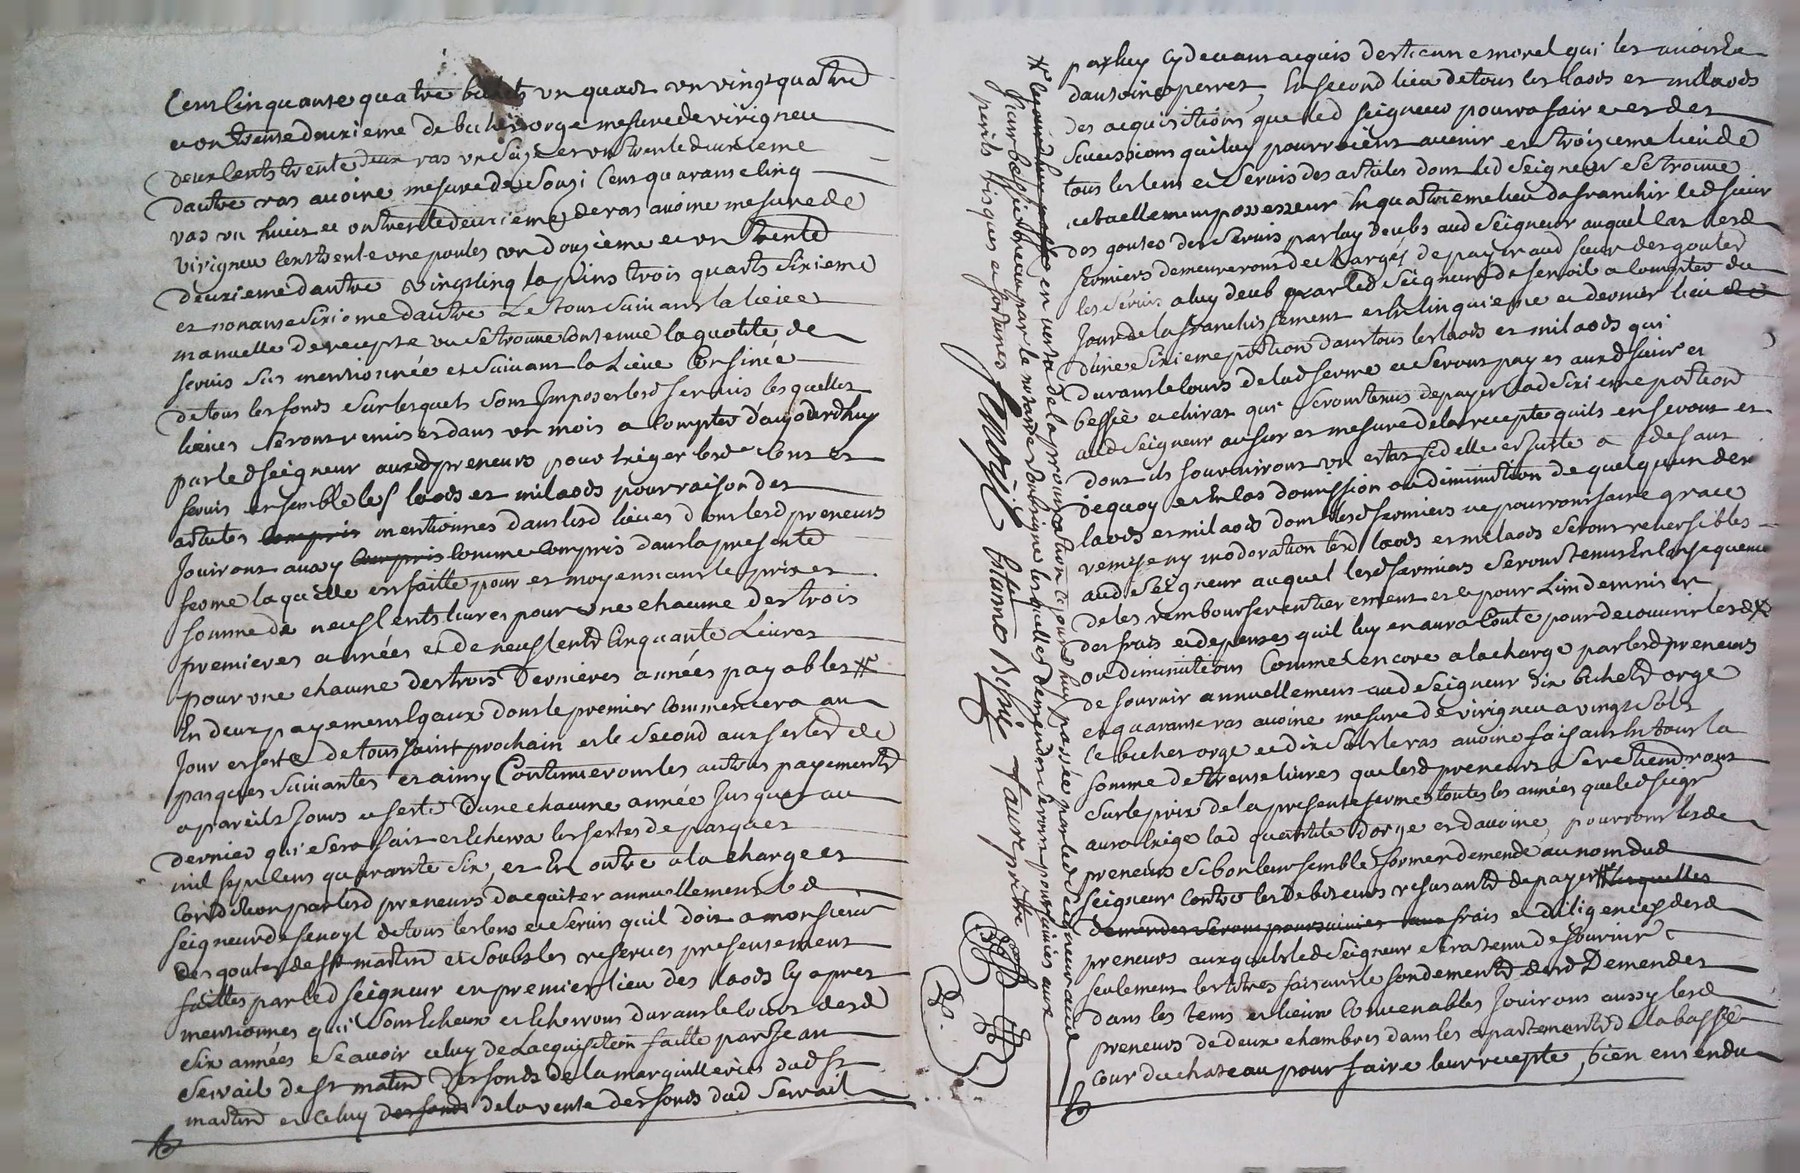 Cent cinquante quatre bichets un quart un vingt quatre
et un trente deuxieme de bichet orge mesure de virigneu
deux cents trente deux ras un seize et un trente deuxieme
d'autre ras avoine mesure de Sousi cent quarante cinq
ras un huict et un trente deuxieme de ras avoine mesure de
virigneu cent trente une poules un douzieme et un trente
deuxieme d'autre vingt cinq lapins trois quarts sixieme
et nonante sixieme d'autre Le tout suivant la lieve
manuelle de recepte ou se trouve contenue la quotité de
servis sus mentionnée et suivant la Lieve
de tous les fonds sur lesquels sont Imposes lesd servis lesquelles
lieves seront remises dans un mois a compter d'aujoderdhuy
par led seigneur auxd preneurs pour Exiger lesd Cens et
servis ensemble les laods et milaods pour raison des
articles compris mentionnes dans lesd lieves dont lesd preneurs
Jouiront aussy compris comme compris dans la presente
ferme laquelle est faitte pour et moyennant le prix et
somme de neuf cents livres pour une chacune des trois
premieres années et de neuf cents cinquante Livres
pour une chacune des trois Dernieres années payables #
En deux payements Egaux dont le premier commencera au
Jour et feste de tous saint prochain et le second aux festes de
pasques suivantes et ainsy Continueront les autres payements
a pareils Jours et feste d'une chacune année Jusques au
dernier qui se sera fait et Echerra les festes de pasques
mil sept cens quarante six, et En outre a la charge et
Condition par lesd preneurs d'acquiter annuellement led
seigneur de senoyl de tous les cens et servis quil doit a monsieur
des goutes de st martin et soubs les reserves presentement
faittes par led seigneur en premier lieu des laods cy apres
mentionnes qui sont Echeux et Echerrons durant le cours desd
six années scavoir celuy de Lacquisition faitte par Jean
Servail de st matin des fonds de la marguillerie dud st
martin et celuy des fonds de la vente des fonds dud Servail
par luy cy devant acquis d'estienne morel qui les avoit Eu
d'antoine perret, En second lieu de tous les laods et milaods
des acquisitions que led seigneur pourra faire et des
successions qui luy pourroient avenir en troisieme lieu de
tous les cens et servis des articles dont led seigneur se trouve
actuellement possesseur En quatrieme lieu d'afranchir led sieur
des goutes des servis par luy deubs aud seigneur auquel cas lesd
fermiers demeureront dechargés de payer aud sieur des goutes
les servis a luy deub par led seigneur de senoil a compter du
Jour de la franchissement et En cinquieme et dernier lieu de
d'une sixieme portion dans tous les laods et milaods qui
durant le cours de lad ferme et seront payes auxd sieur et
bessié et chirat qui seront tenus de payer lad sixieme portion
aud seigneur au fur et mesure de la recepte quils en feront et
dont ils fourniront un estat fidelle et juste a defaut
de quoy et En cas d'omission ou diminution de quelqu'un des
laods et milaods dont lesd fermiers ne pourront faire grace
remise ny moderation lesd laods et milaods seront reversibles
aud seigneur auquel lesd fermiers seront tenus En consequence
de les rembourser entierement et pour L'indemniser
des frais et depenses quil luy en aura Couté pour decouvrir lesd
ou diminutions Comme encore a la charge par lesd preneurs
de fournir annuellement aud seigneur dix bichets orge
et quarante ras avoine mesure de virigneu a vingt sols
le bichet orge et dix sols le ras avoine faisant En tout la
somme de trente livres que lesd preneurs se retiendront
sur le prix de la presente ferme toutes les années que led seigr
aura Exigé lad quantité d'orge et d'avoine, pourront lesd
preneurs si bon leur semble former demende au nom dud
seigneur contre les debiteurs refusants de payer # lesquelles
demendes seront poursuivies aux frais et diligences desd
preneurs auxquels led seigneur sera tenu de fournir
seulement les titres faisant le fondement desd Demendes
dans les tems et lieux Convenables Jouiront aussy lesd
preneurs de deux chambres dans les apartements de la basse
cour du chateau pour faire leur recepte, bien entendu
# en vertu de la procuration ce jourd'huy passée par led seigneur aud
Jean bessié receu par le notaire soubsigné lesquelles demendes seront poursuivies aux
perils risques et fortunes
Senoyl Bessié Faure